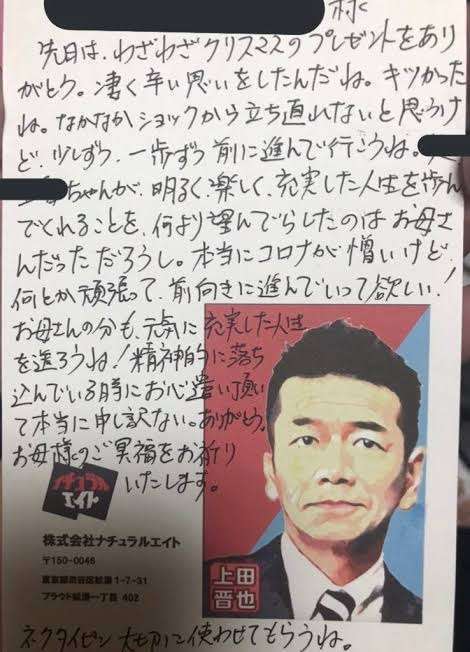 様
先日は、わざわざクリスマスのプレゼントをあり
がとう。凄く辛い思いをしたんだね。キツかった
ね。なかなかショックから立ち直れないと思うけ
ど、少しずつ、一歩ずつ前に進んで行こうね。
ちゃんが、明るく、楽しく、充実した人生を歩ん
でくれることを、何より望んでらしたのはお母さ
んだっただろうし。本当にコロナが憎いけど、
何とか頑張って、前向きに進んでいって欲しい!
お母さんの分も、元気に充実した人生
を送ろうね!精神的に落ち
込んでいる時にお心遣い頂い
て本当に申し訳ない。ありがとう。
お母様のご冥福をお祈り
いたします。
ナチュラル
エイト
株式会社ナチュラルエイト
〒150-0046
東京都渋谷区松濤1-7-31
プラウド松濤一丁目 402
上田
晋也
ネクタイピン 大切に使わせてもらうね。